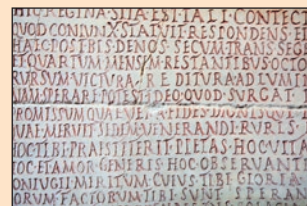 HIC REGINA SITA EST TALI CONTEC
QVOD CONIVNX STATVIT RESPONDENS E
HAEC POST BIS DENOS SECVM TRANSSE
ET QVARTVM MENSEM RESTANTIBVS OCTO
RVRSVM VICTVRA REDITVRA AD LVMI
NAM SPERARE POTEST IDEO QVOD SVRGAT
PROMISSVM QVAE VERA FIDES DIGNISQVE
QVAE MERVIT SEDEM VENERANDI RVRIS
HOC TIBI PRAESTITERIT PIETAS HOC VITA
HOC ET AMOR GENERIS HOC OBSERVANT
ONIVGII MERITVM CVIVS TIBI GLORIA
ORVM FACTORVM TIBI SVNT SPERAN